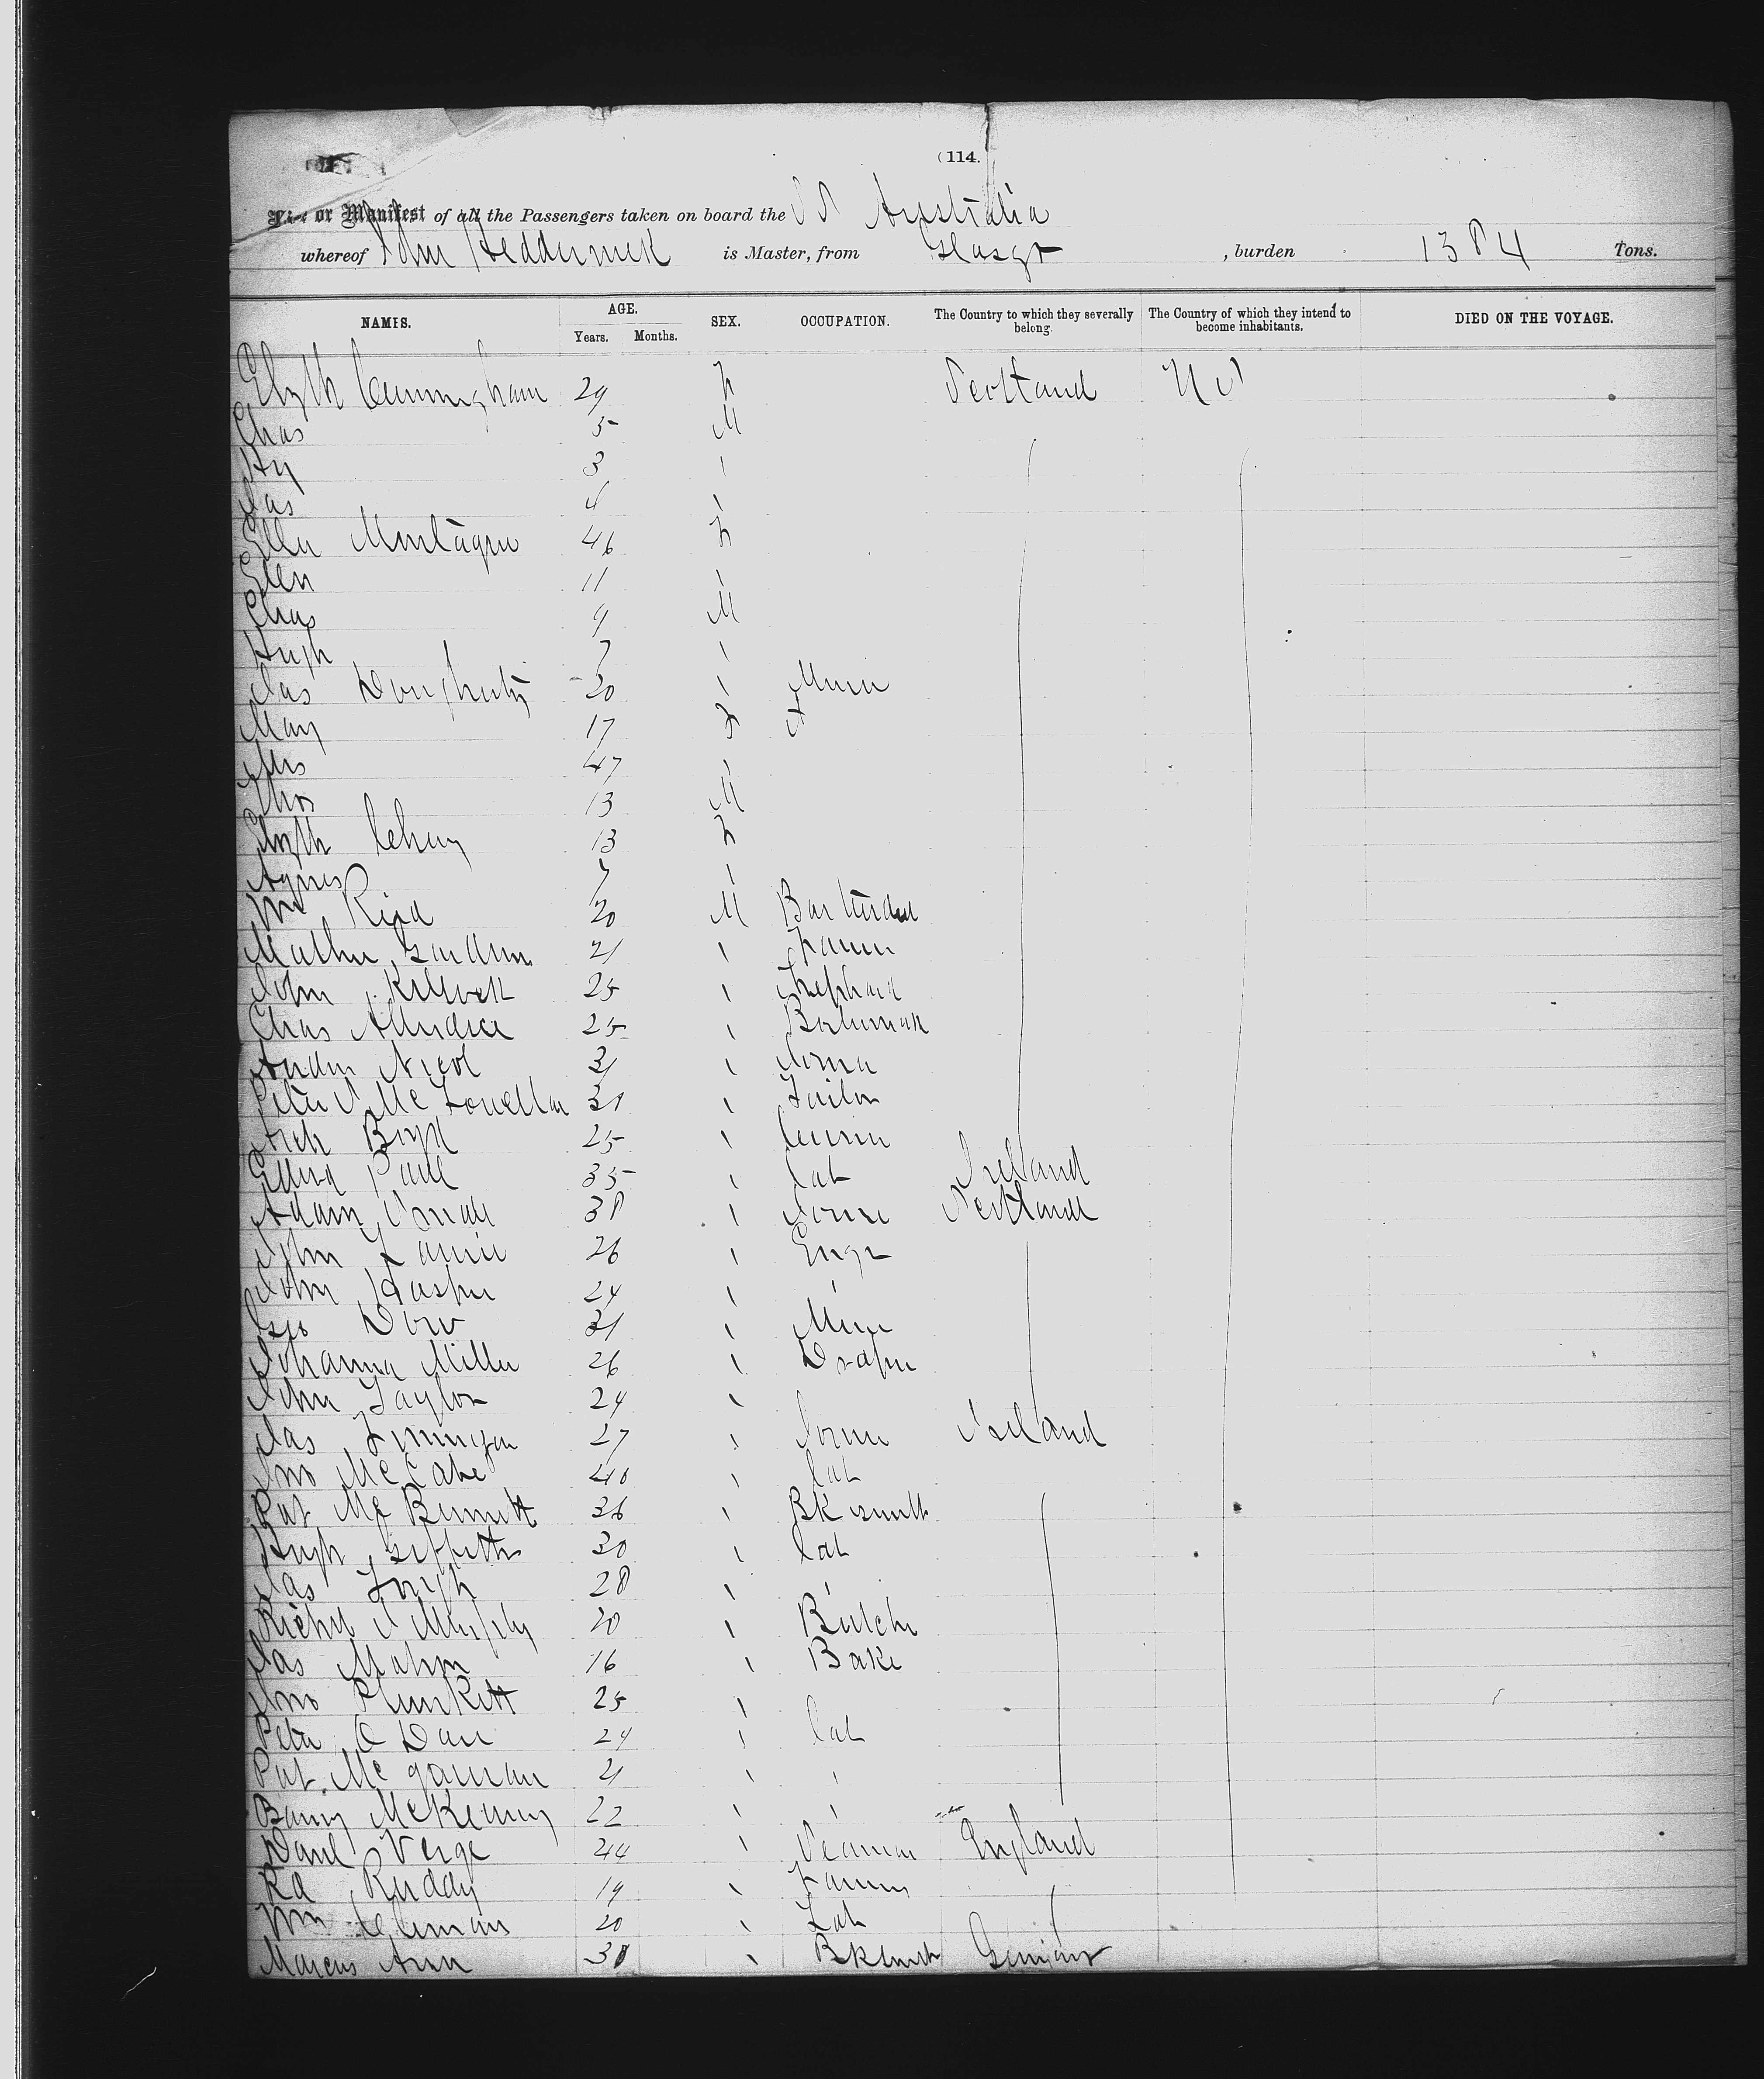 (114.
List or Manifest of all the Passengers taken on board the SS Australia
whereof John Hedderwick is Master, from Glasgo , burden 1384 Tons.
NAMES. AGE. SEX. OCCUPATION. The Country to which they severally belong. The Country of which they intend to become inhabitants. DIED ON THE VOYAGE.
Years. Months.
Elizth Cunningham 29 F Scotland US
Chas 5 M
Hy 3 "
Jas 4 "
Ellen Montague 46 F
Ellen 11 "
Chas 9 M
Hugh 7 "
Jas Dougherty 20 " Miner
Mary 17 F
Mrs 47 "
Thos 13 M
Elizth 13 F
Agnes 7 "
Wm Reid 20 M Bartender
Mathew Gardner 21 " Farmer
John 25 " Shephard
Chas 25 "
Andw Nicol 31 " Joiner
Peter 31 " Tailor
Arch Boyd 25 "
Edwd Paul 35 " Lab Ireland
Adam Small 38 " Joiner Scotland
John Lawrie 26 " Engr
John 24 " "
Geo Dow 31 " Miner
Johanna Miller 26 " Draper
John Taylor 24 "
Jas Finnigan 27 " Joiner Ireland
Jno McCabe 40 " Lab
Pat Mc Bennett 36 " Bk smith
Hugh Griffiths 30 " Lab
Jas 28 " "
Richd J Murphy 20 " Butcher
Jas Mahon 16 " Baker
Jno Plunkett 25 "
Peter O Dare 24 " Lab
Pat Mc gowran 21 " "
Barny McKenny 22 " "
Danl Verge 44 " Seaman England
Rd Ruddy 19 " Farmer
Wm Clemens 20 " Lab
Marcus Aron 38 " Bksmith Germany